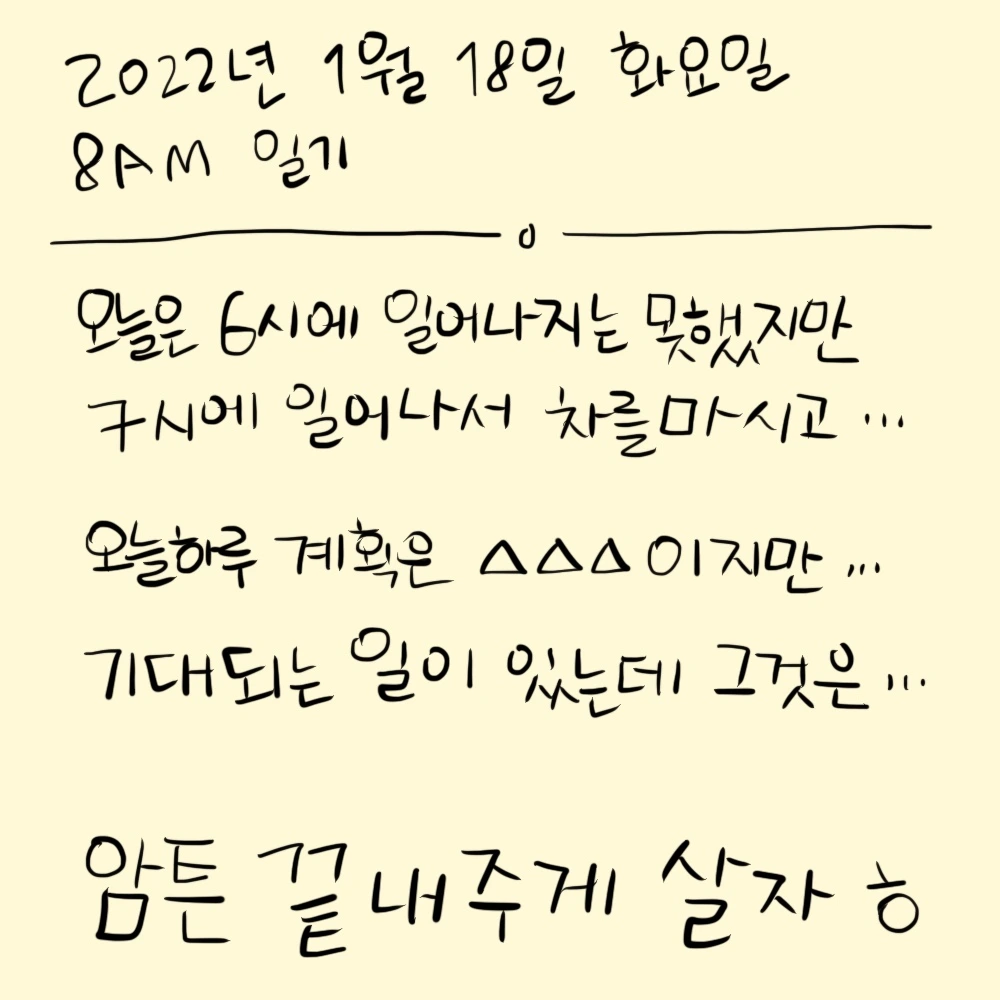 2022년 1월 18일 화요일
8AM 일기
오늘은 6시에 일어나지는 못했지만
7시에 일어나서 차를마시고 ...
오늘하루 계획은 △△△이지만 ...
기대되는 일이 있는데 그것은 ...
암튼 끝내주게 살자 ㅎ